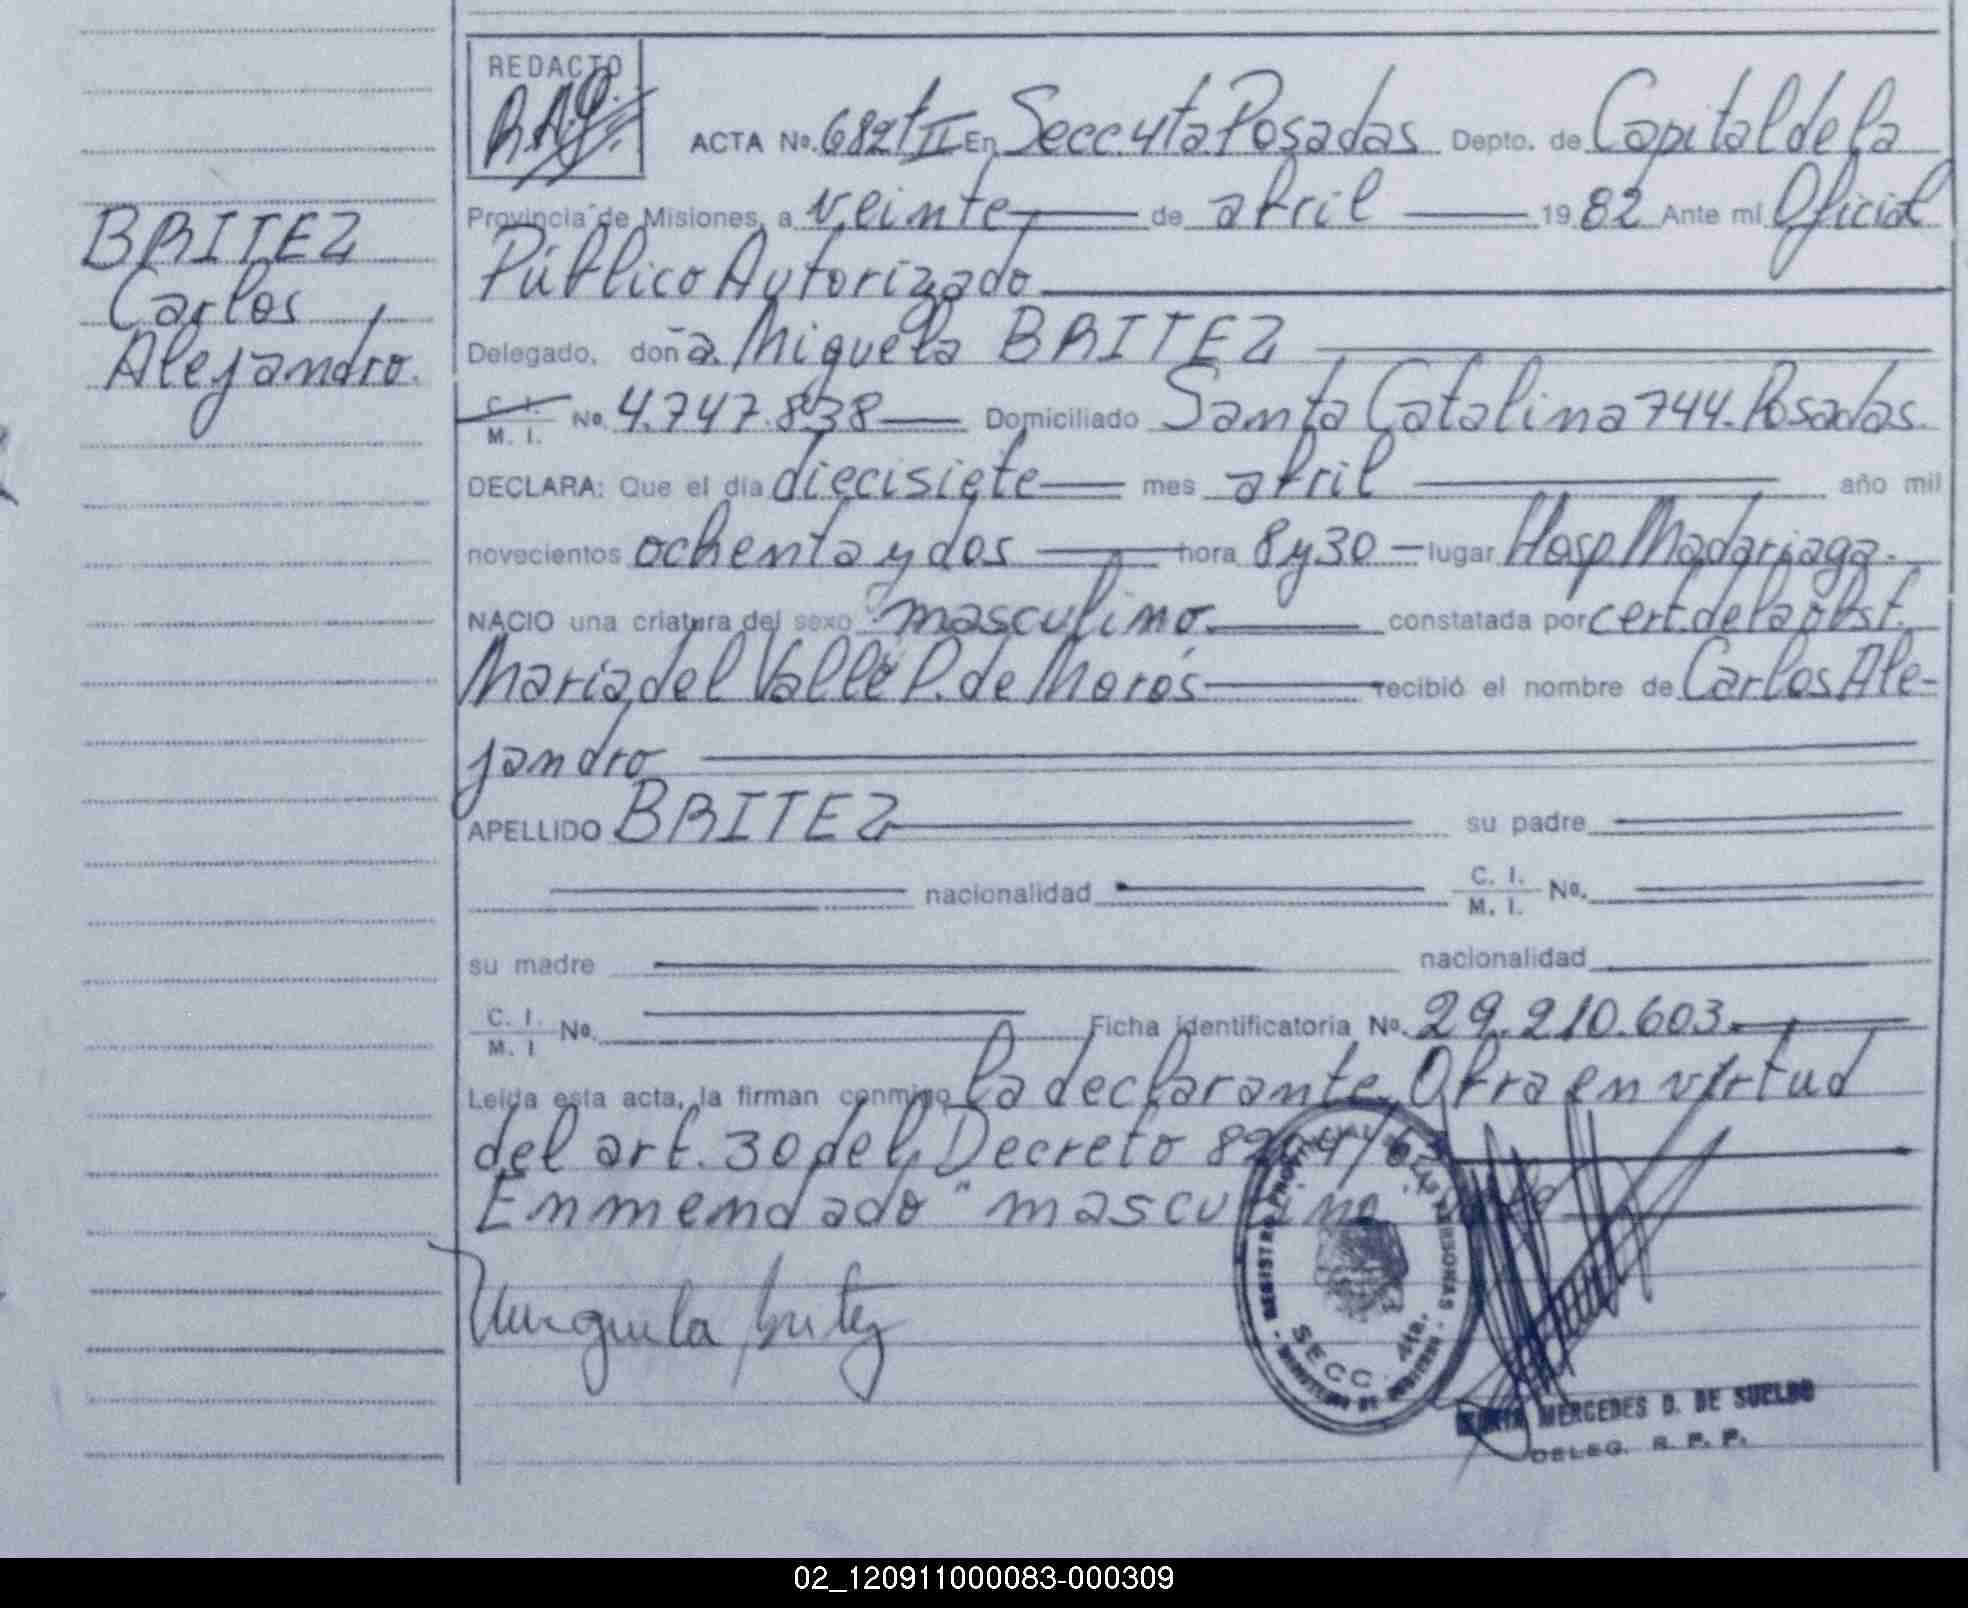 REDACTO
ACTA No. 682 t II En Secc. 4ta Posadas Depto. de Capital de la
Provincia de Misiones, a veinte de abril 1982 Ante mí Oficial
Público Autorizado
BRITEZ
Carlos
Alejandro.
Delegado, doña. Miguela BRITEZ
C. I. M. I. No. 4.747.838 Domiciliado Santa Catalina 744. Posadas.
DECLARA: Que el día diecisiete mes abril año mil
novecientos ochenta y dos hora 8 y 30 lugar Hosp Madariaga.
NACIO una criatura del sexo masculino. constatada por cert. de la obst.
María del Valle P. de Morós recibió el nombre de Carlos Ale-
jandro
APELLIDO BRITEZ su padre
nacionalidad C. I. M. I. No.
su madre nacionalidad
C. I. M. I No. Ficha identificatoria No. 29.210.603.
Leída esta acta, la firman conmigo la declarante. Obra en virtud
del art. 30 del Decreto
Enmendado "masculino
Miguela Britez
SECC. 4ta.
MERCEDES D. DE SUELDO
DELEG. R. P. P.
02_120911000083-000309